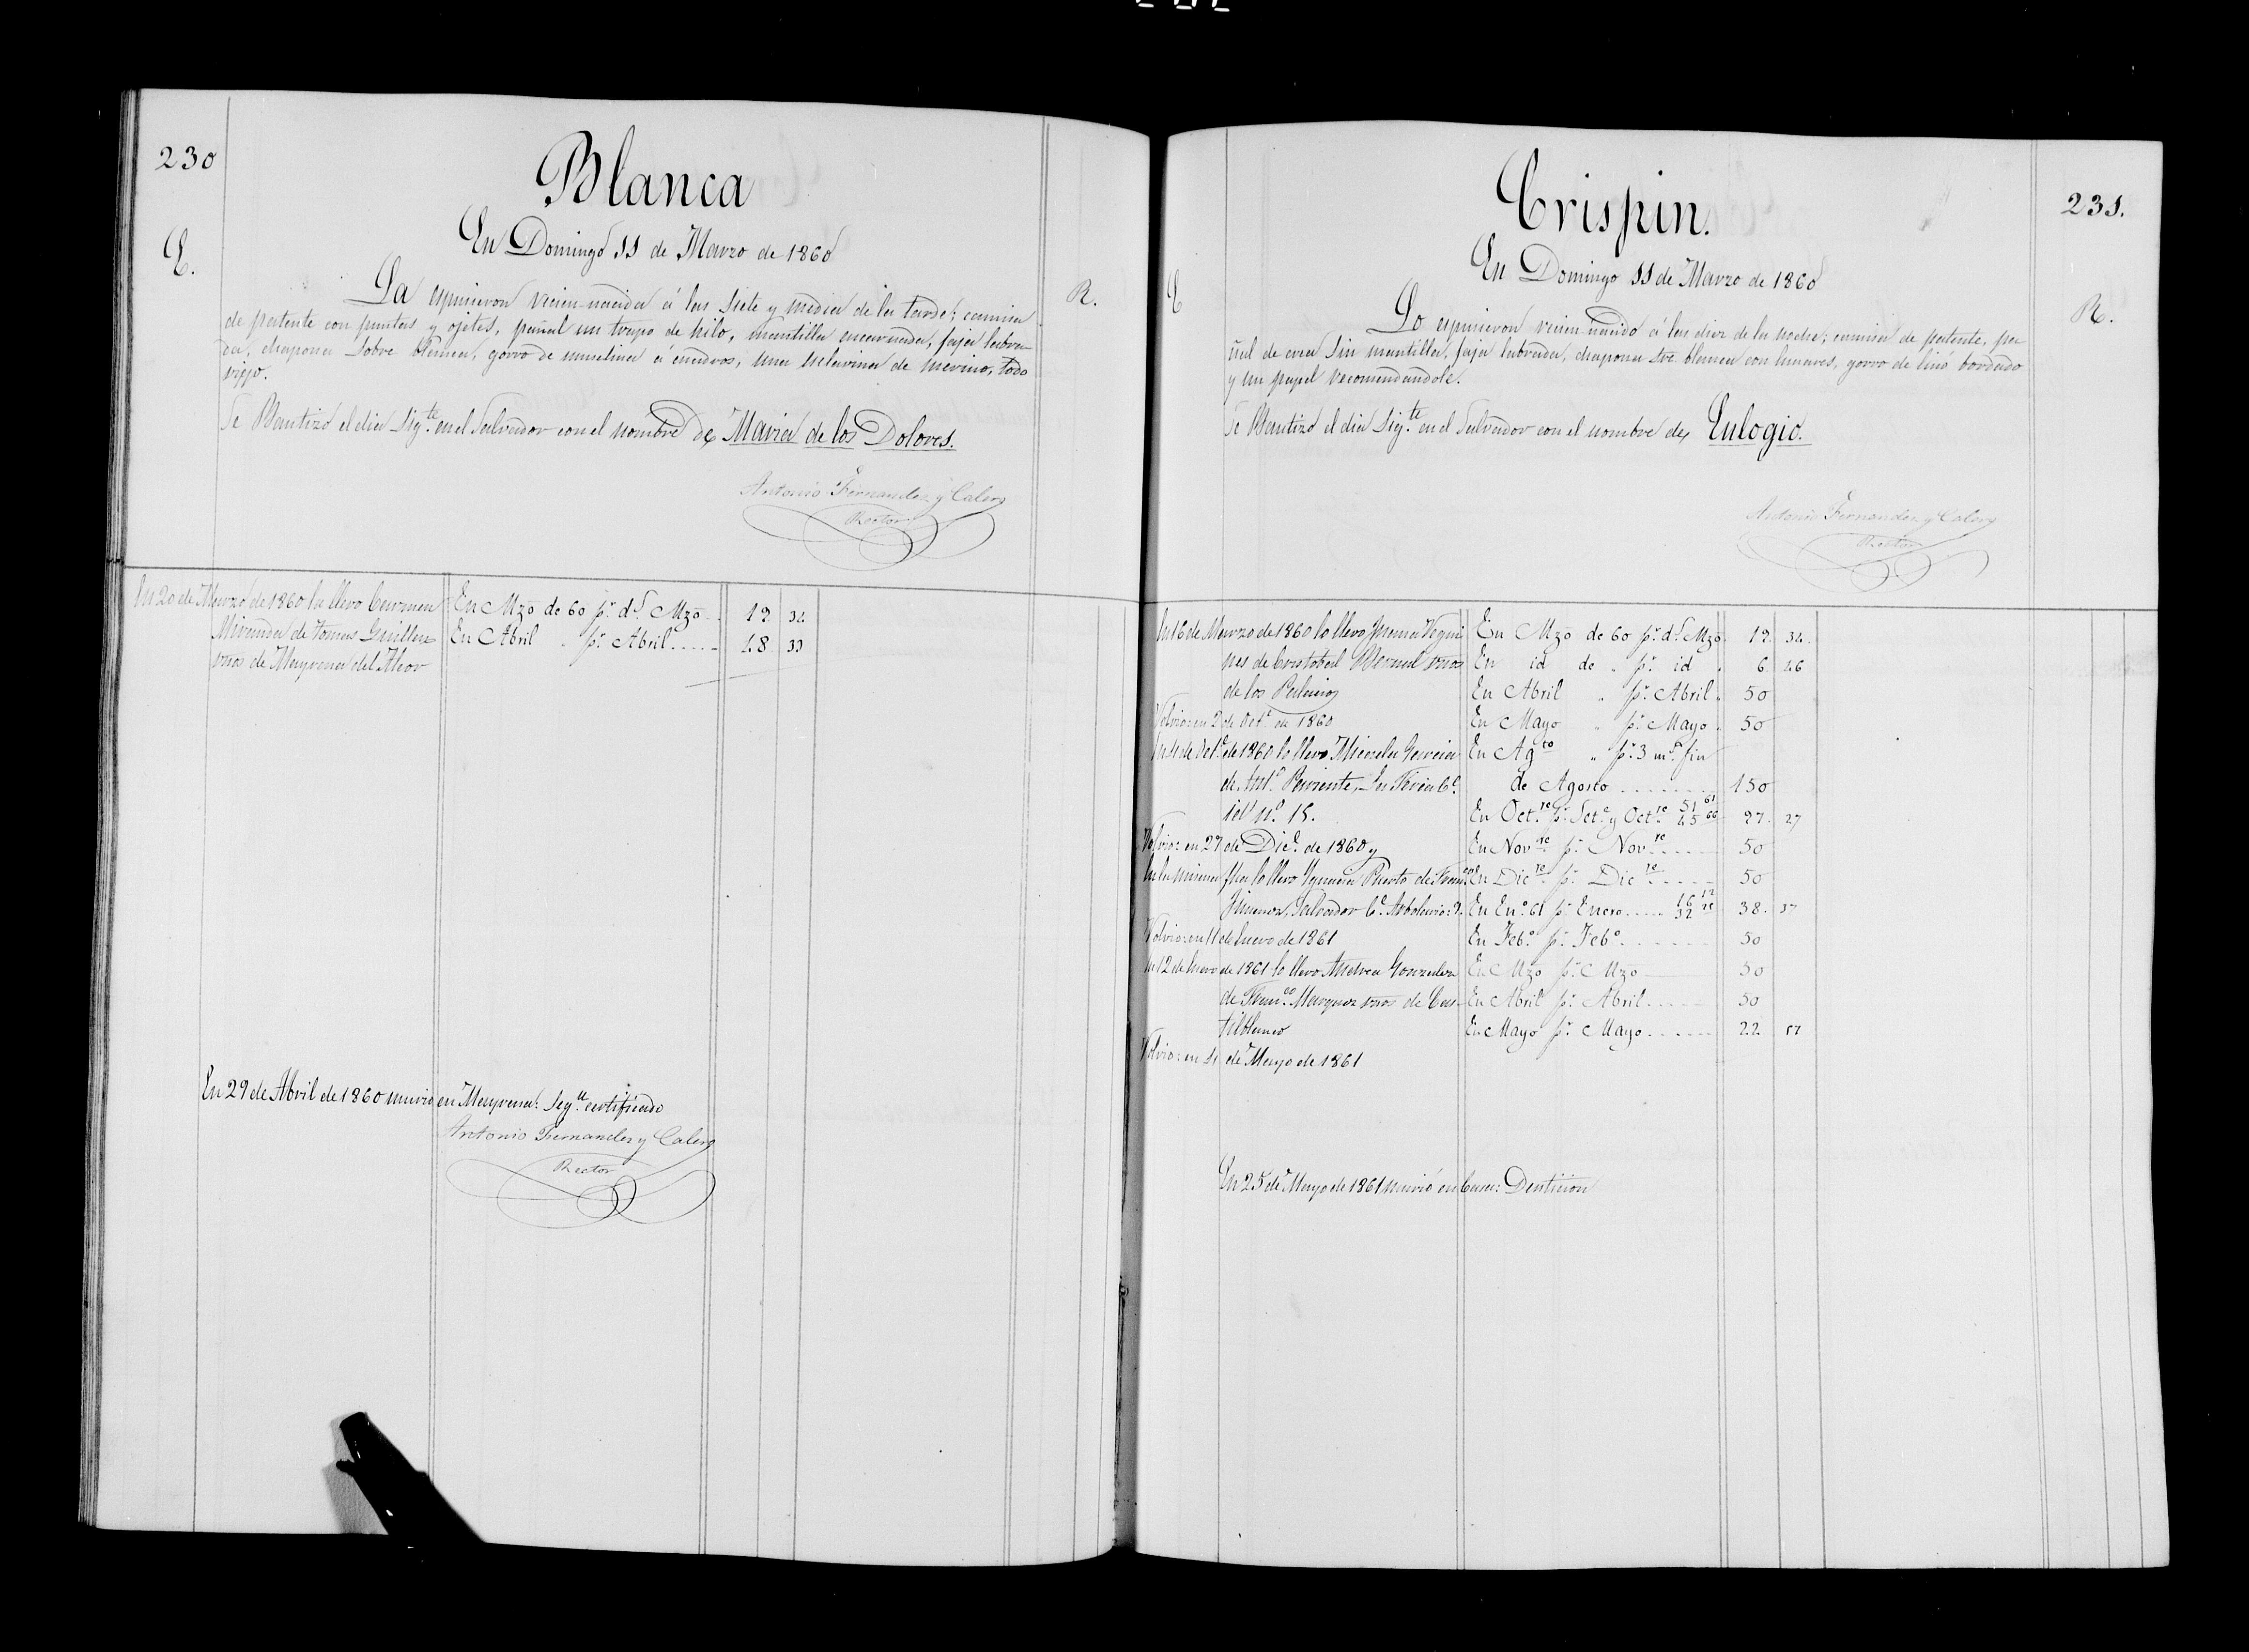 230
Blanca
En Domingo 11 de Marzo de 1860
E.
R.
La espusieron recien-nacida á las siete y media de la tarde; camisa
de patente con puntas y ojetes, pañal un trapo de hilo, mantilla encarnada, faja labra-
da, chapona sobre blanca, gorro de muselina á cuadros, una esclavina de merino, todo
viejo.
Se Bautizó el dia sigte. en el Salvador con el nombre de Maria de los Dolores.
Antonio Fernandez y Calero
Rector
En 20 de Marzo de 1860 la llevo Carmen
Miranda de Tomas Guillen
vnos de Mayrena del Alcor
En Mzo de 60 pr. d.l Mzo 19 34
En Abril " pr. Abril 48 33
En 29 de Abril de 1860 murio en Mayrena: Segn. certificado
Antonio Fernandez y Calero
Rector
231.
Crispin.
En Domingo 11 de Marzo de 1860
E
R.
Lo espusieron recien-nacido á las diez de la noche; camisa de patente, pa
ñal de crea sin mantilla, faja labrada, chapona sre. blanca con lunares, gorro de linó bordado
y un papel recomendandole.
Se Bautizó el dia sigte. en el Salvador con el nombre de, Eulogio.
Antonio Fernandez y Calero
Rector
En 16 de Marzo de 1860 lo llevo Juana
de Cristobal Bernal vnos
de los Palacios
Volvio: en 2 de Octe. de 1860
En 4 de Octe. de 1860 lo llevo Micaela Garcia
de Anto. Pariente, La Feria Ce.
id no. 15.
Volvio: en 27 de Dice. de 1860 y
En la misma fha lo llevo Ygnacia Puerto de Franco.
Jimenez, Salvador Ce. Arbolario: 9.
Volvio: en 11 de Enero de 1861
En 12 de Enero de 1861 lo llevo Andrea Gonzalez
de Franco. Marquez vnos de Cas-
tilblanco
Volvio: en 14 de Mayo de 1861
En Mzo de 60 pr. d.l Mzo 19. 34.
En id de " pr. id 6. 46
En Abril " pr. Abril 50
En Mayo " pr. Mayo 50
En Agto " pr. 3 ms. fin
de Agosto 150
En Octre. pr. Sete. y Octre. 51 61 45 66 97. 27
En Novre. pr. Novre. 50
En Dicre. pr. Dicre. 50
En Eno. 61 pr. Enero 38. 37
En Febo. pr. Febo. 50
En Mzo pr. Mzo 50
En Abril pr. Abril 50
En Mayo pr. Mayo 22 57
En 25 de Mayo de 1861 murió en Casa: Denticion